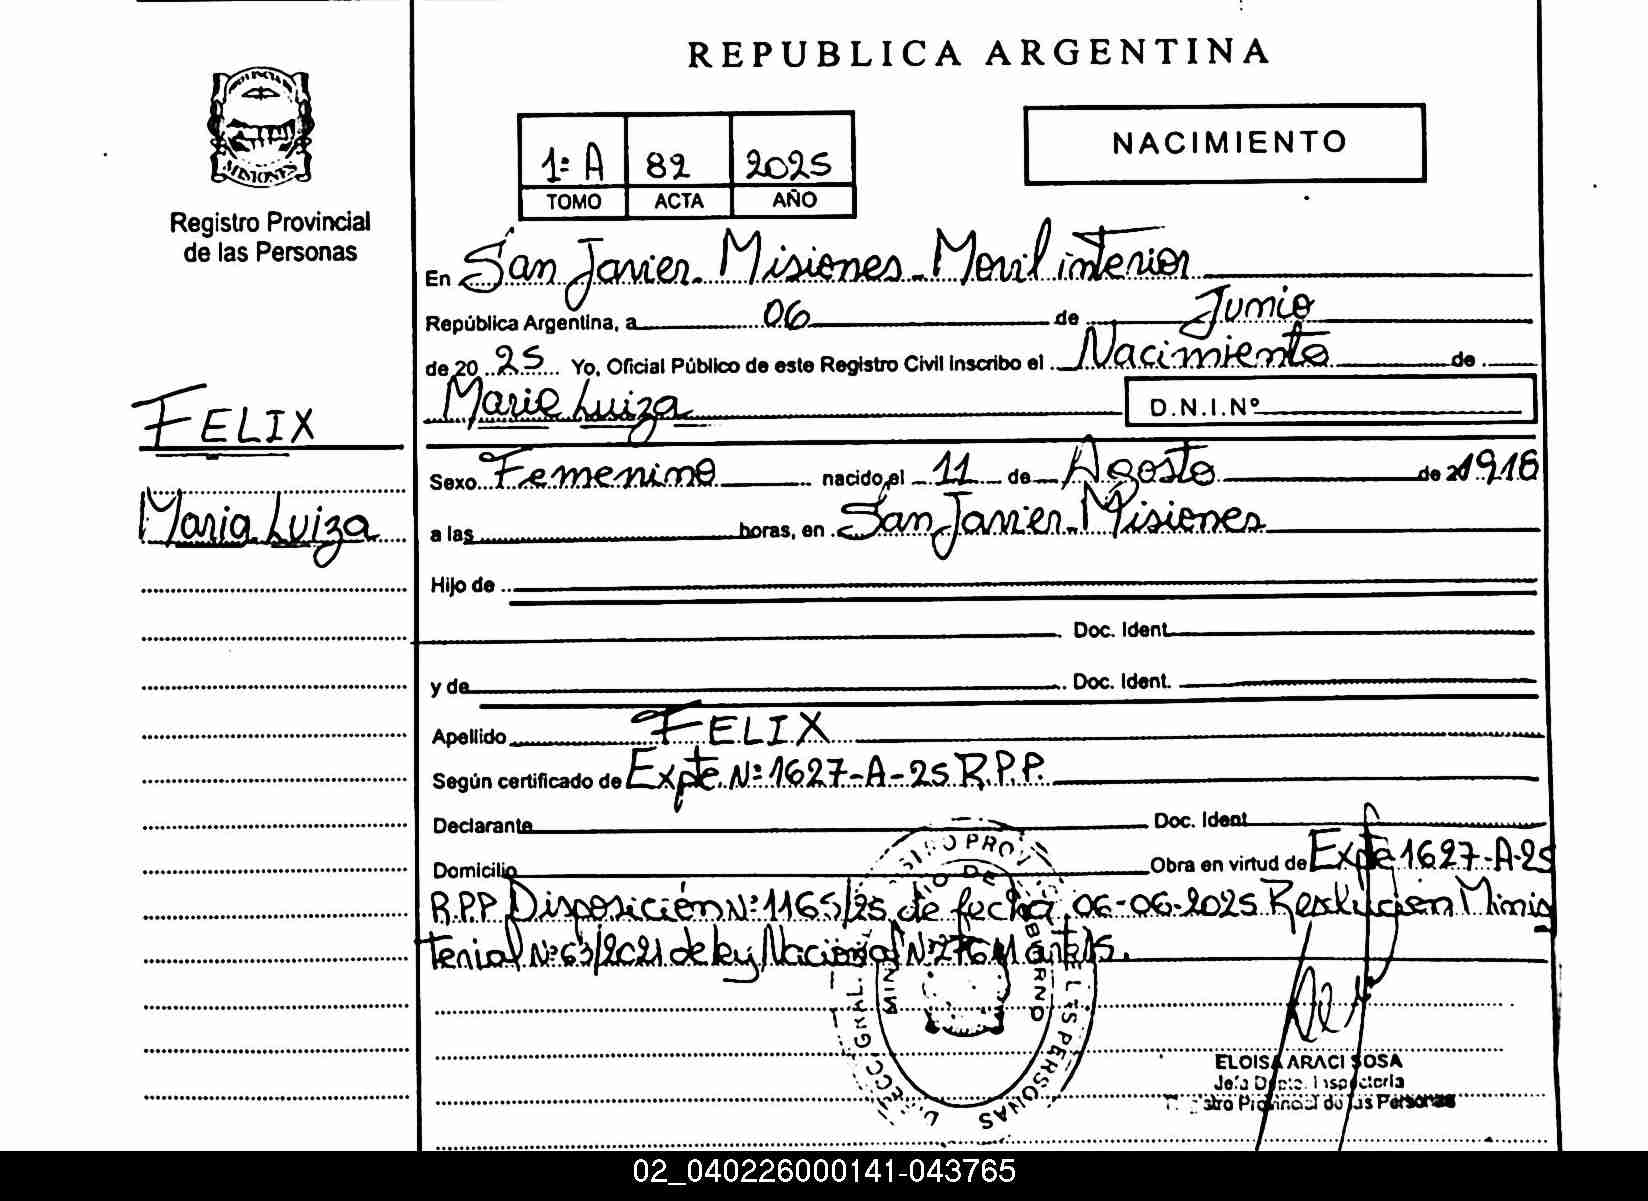 REPUBLICA ARGENTINA
MISIONES
Registro Provincial
de las Personas
1º A 82 2025
TOMO ACTA AÑO
NACIMIENTO
En San Javier Misiones Movil interior
República Argentina, a 06 de Junio
de 20 25 Yo, Oficial Público de este Registro Civil Inscribo el Nacimiento de
Marie Luiza D.N.I.Nº
FELIX
Maria Luiza
Sexo Femenino nacido el 11 de Agosto de 1916
a las horas, en San Javier Misiones
Hijo de
Doc. Ident.
y de Doc. Ident.
Apellido FELIX
Según certificado de Expte. Nº 1627-A-25 R.P.P.
Declarante Doc. Ident.
Domicilio Obra en virtud de Expte 1627-A-25
R.P.P Disposición Nº 1165/25 de fecha 06-06-2025 Resolución Minis
terial Nº 63/2021 de Ley Nacional Nº
ELOISA ARACI SOSA
Jefa Dpto. Inspectoria
Registro Provincial de las Personas
02_040226000141-043765